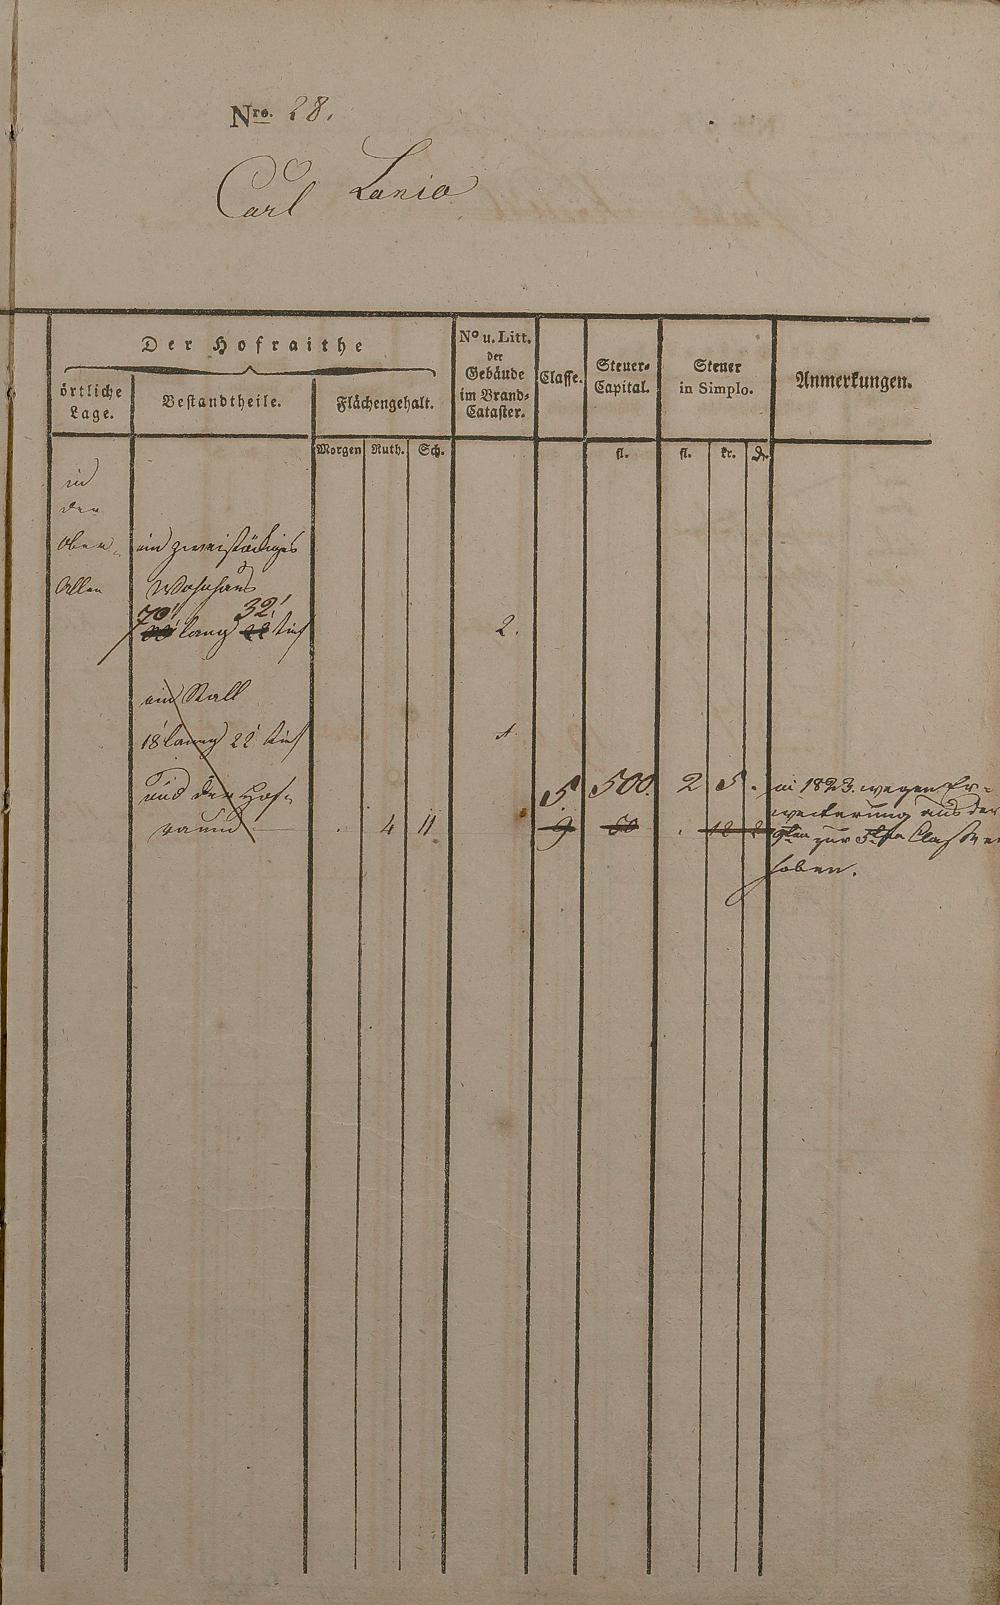 Nro. 28.
Carl Lanio
Der Hofraithe
örtliche Lage.
Bestandtheile.
Flächengehalt.
No u. Litt. der Gebäude im Brand-Cataster.
Classe.
Steuer-Capital.
Steuer in Simplo.
Anmerkungen.
Morgen Ruth. Sch. fl. fl. kr. d.
in
der
obern
Allee
ein zweistöckiges
Wohnhaus
70' 32'
lang 22 tief 2.
ein Stall
18' lang 22' tief
und der Hof-
raum . 4 11
5. 500. 2 5 .
9 50 . 12 2
in 1823. wegen Er-
weiterung aus der
9ten zur 5ten Classe er
hoben.